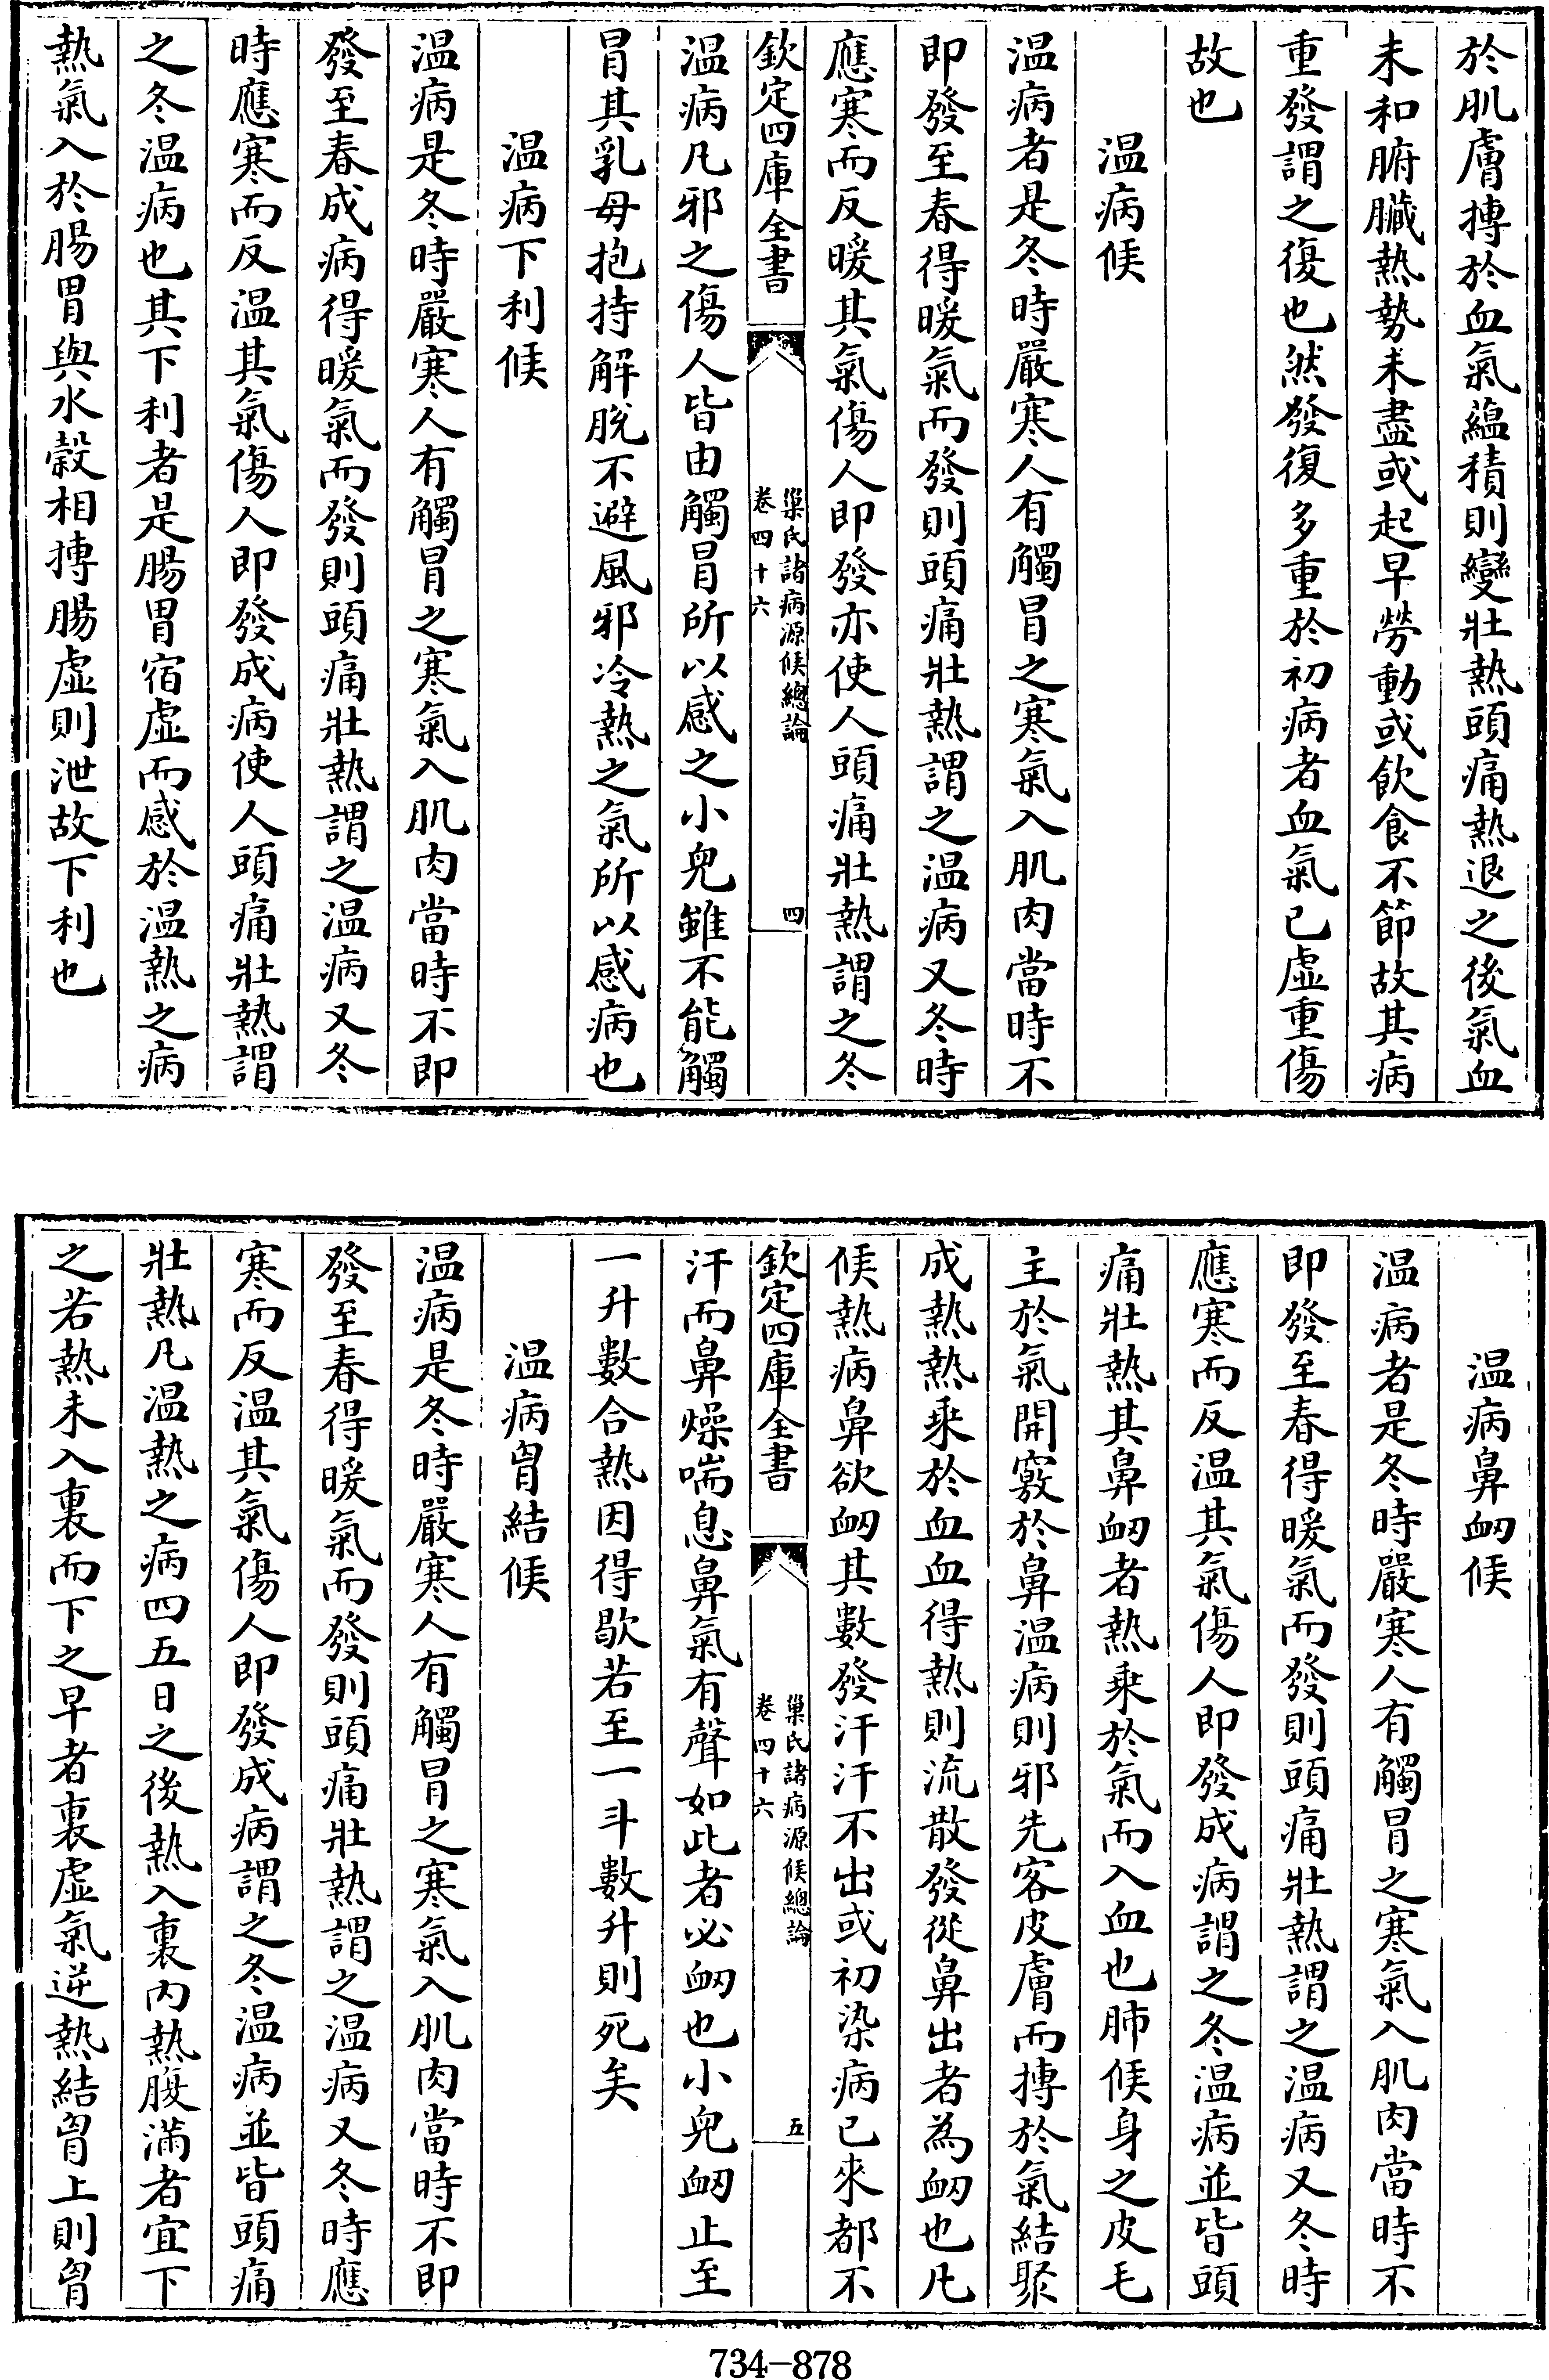 於肌膚搏於血氣蘊積則變壯熱頭痛熱退之後氣血
未和腑臟熱勢未盡或起早勞動或飲食不節故其病
重發謂之復也然發復多重於初病者血氣已虛重傷
故也
温病候
温病者是冬時嚴寒人有觸冒之寒氣入肌肉當時不
即發至春得暖氣而發則頭痛壯熱謂之温病又冬時
應寒而反暖其氣傷人即發亦使人頭痛壯熱謂之冬
欽定四庫全書
巢氏諸病源候總論
卷四十六
四
温病凡邪之傷人皆由觸冒所以感之小兒雖不能觸
冒其乳母抱持解脫不避風邪冷熱之氣所以感病也
温病下利候
温病是冬時嚴寒人有觸冒之寒氣入肌肉當時不即
發至春成病得暖氣而發則頭痛壯熱謂之温病又冬
時應寒而反温其氣傷人即發成病使人頭痛壯熱謂
之冬温病也其下利者是腸胃宿虛而感於温熱之病
熱氣入於腸胃與水穀相搏腸虛則泄故下利也
温病鼻衂候
温病者是冬時嚴寒人有觸冒之寒氣入肌肉當時不
即發至春得暖氣而發則頭痛壯熱謂之温病又冬時
應寒而反温其氣傷人即發成病謂之冬温病並皆頭
痛壯熱其鼻衂者熱乘於氣而入血也肺候身之皮毛
主於氣開竅於鼻温病則邪先客皮膚而搏於氣結聚
成熱熱乘於血血得熱則流散發從鼻出者為衂也凡
候熱病鼻欲衂其數發汗汗不出或初染病已來都不
欽定四庫全書
巢氏諸病源候總論
卷四十六
五
汗而鼻燥喘息鼻氣有聲如此者必衂也小兒衂止至
一升數合熱因得歇若至一斗數升則死矣
温病胷結候
温病是冬時嚴寒人有觸冒之寒氣入肌肉當時不即
發至春得暖氣而發則頭痛壯熱謂之温病又冬時應
寒而反温其氣傷人即發成病謂之冬温病並皆頭痛
壯熱凡温熱之病四五日之後熱入裏内熱腹滿者宜下
之若熱未入裏而下之早者裏虛氣逆熱結胷上則胷
734-878